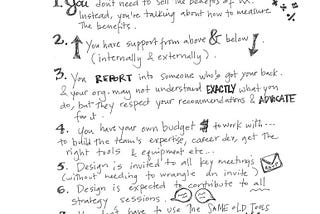 1. You don't need to sell the benefits of
Instead, you're talking about how to measure
the benefits.
2. You have support from above & below
(internally & externally).
3. You REPORT into someone who's got your back.
& your org. may not understand EXACTLY what you
do, but they respect your recommendations & ADVOCATE
for it.
4. You have your own budget $ to work with...
to build the team's expertise, career dev, get the
right tools & equipment etc...
5. Design is invited to all key meetings
(without needing to wrangle an invite)
6. Design is expected to contribute to all
strategy sessions.
have to use the SAME OLD TOOLS